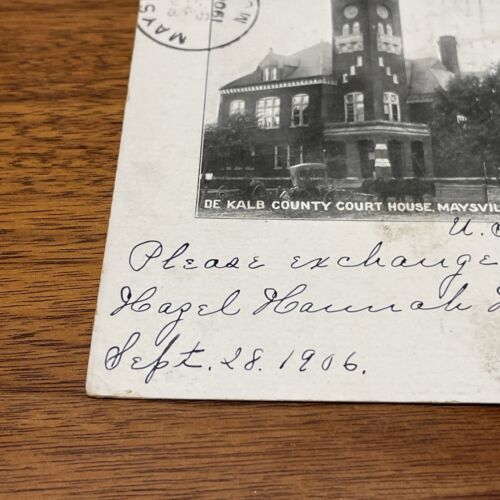 MAYS
1906
MO
DE KALB COUNTY COURT HOUSE, MAYSVIL
U.
Please exchange
Hazel Hannah
Sept. 28. 1906.